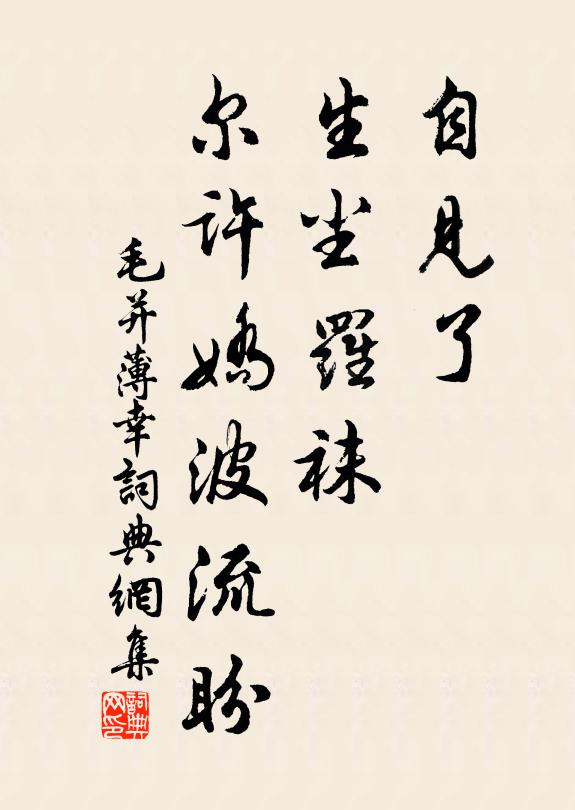 自见了
生尘羅袜
尔许嬌波流盼
毛并薄幸詞典網集
詞典网印